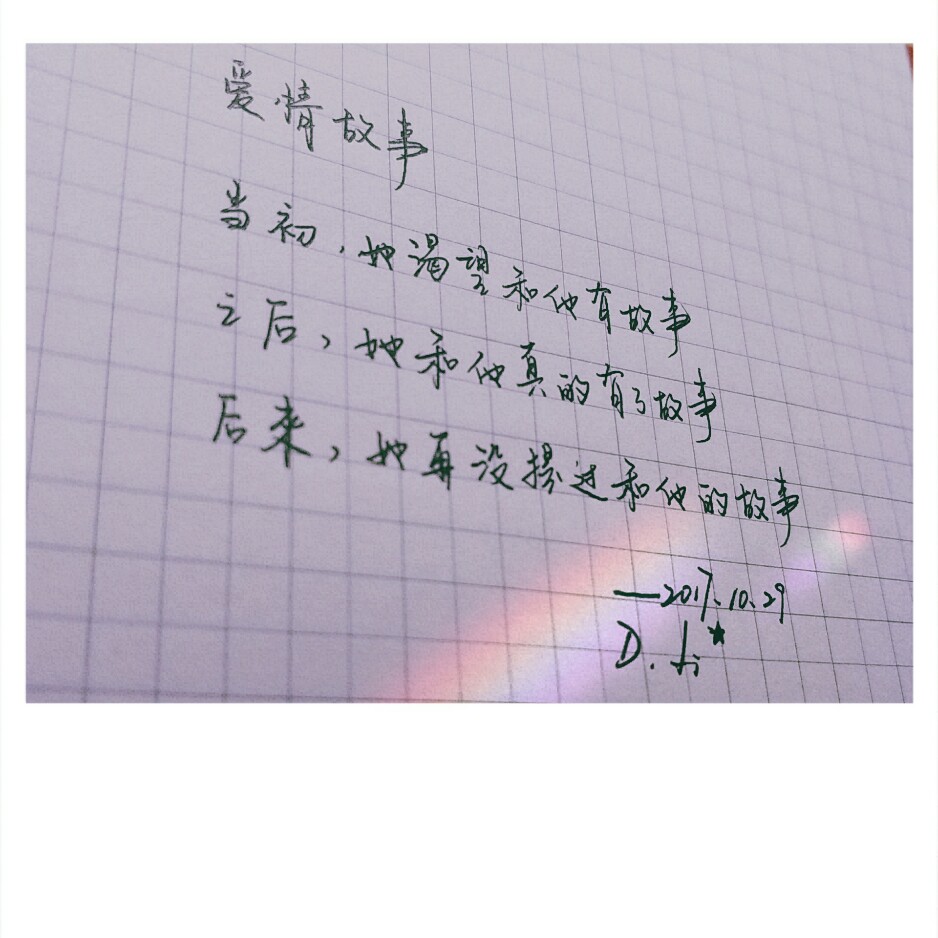 爱情故事
当初，她渴望和他有故事
之后，她和他真的有了故事
后来，她再没提过和他的故事
—2017.10.29
D. Li★